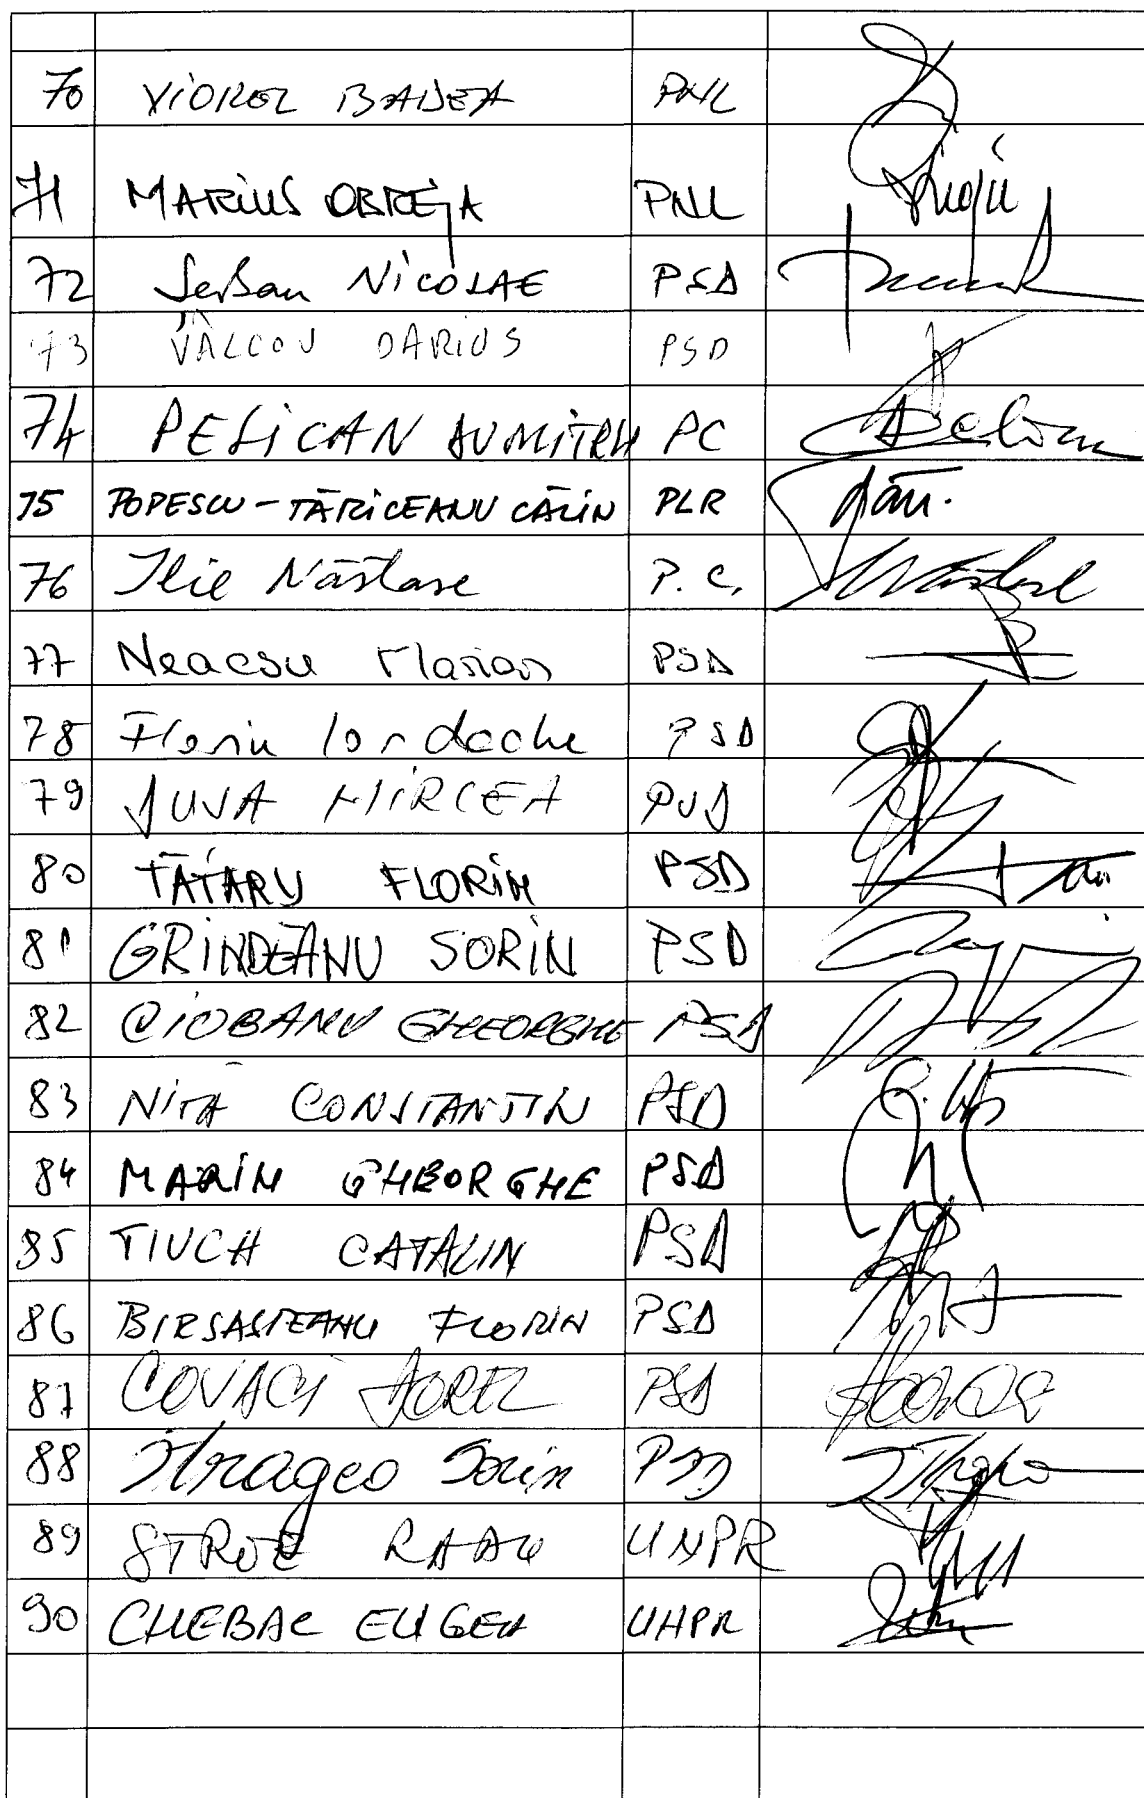 70 VIOREL BADEA PNL
71 MARIUS OBREJA PNL
72 Serban NICOLAE PSD
73 VÂLCOV DARIUS PSD
74 PELICAN DUMITRU PC
75 POPESCU-TĂRICEANU CĂLIN PLR
76 Ilie Năstase P.C.
77 Neacsu Marian PSD
78 Florin Iordache PSD
79 DUŞA MIRCEA PSD
80 TĂTARU FLORIN PSD
81 GRINDEANU SORIN PSD
82 CIOBANU GHEORGHE PSD
83 NIŢĂ CONSTANTIN PSD
84 MARIN GHEORGHE PSD
85 TIUCH CATALIN PSD
86 BIRSASTEANU FLORIN PSD
87 COVACI DOREL PSD
88 Sorin PSD
89 STROE RADU UNPR
90 CHEBAC EUGEN UNPR